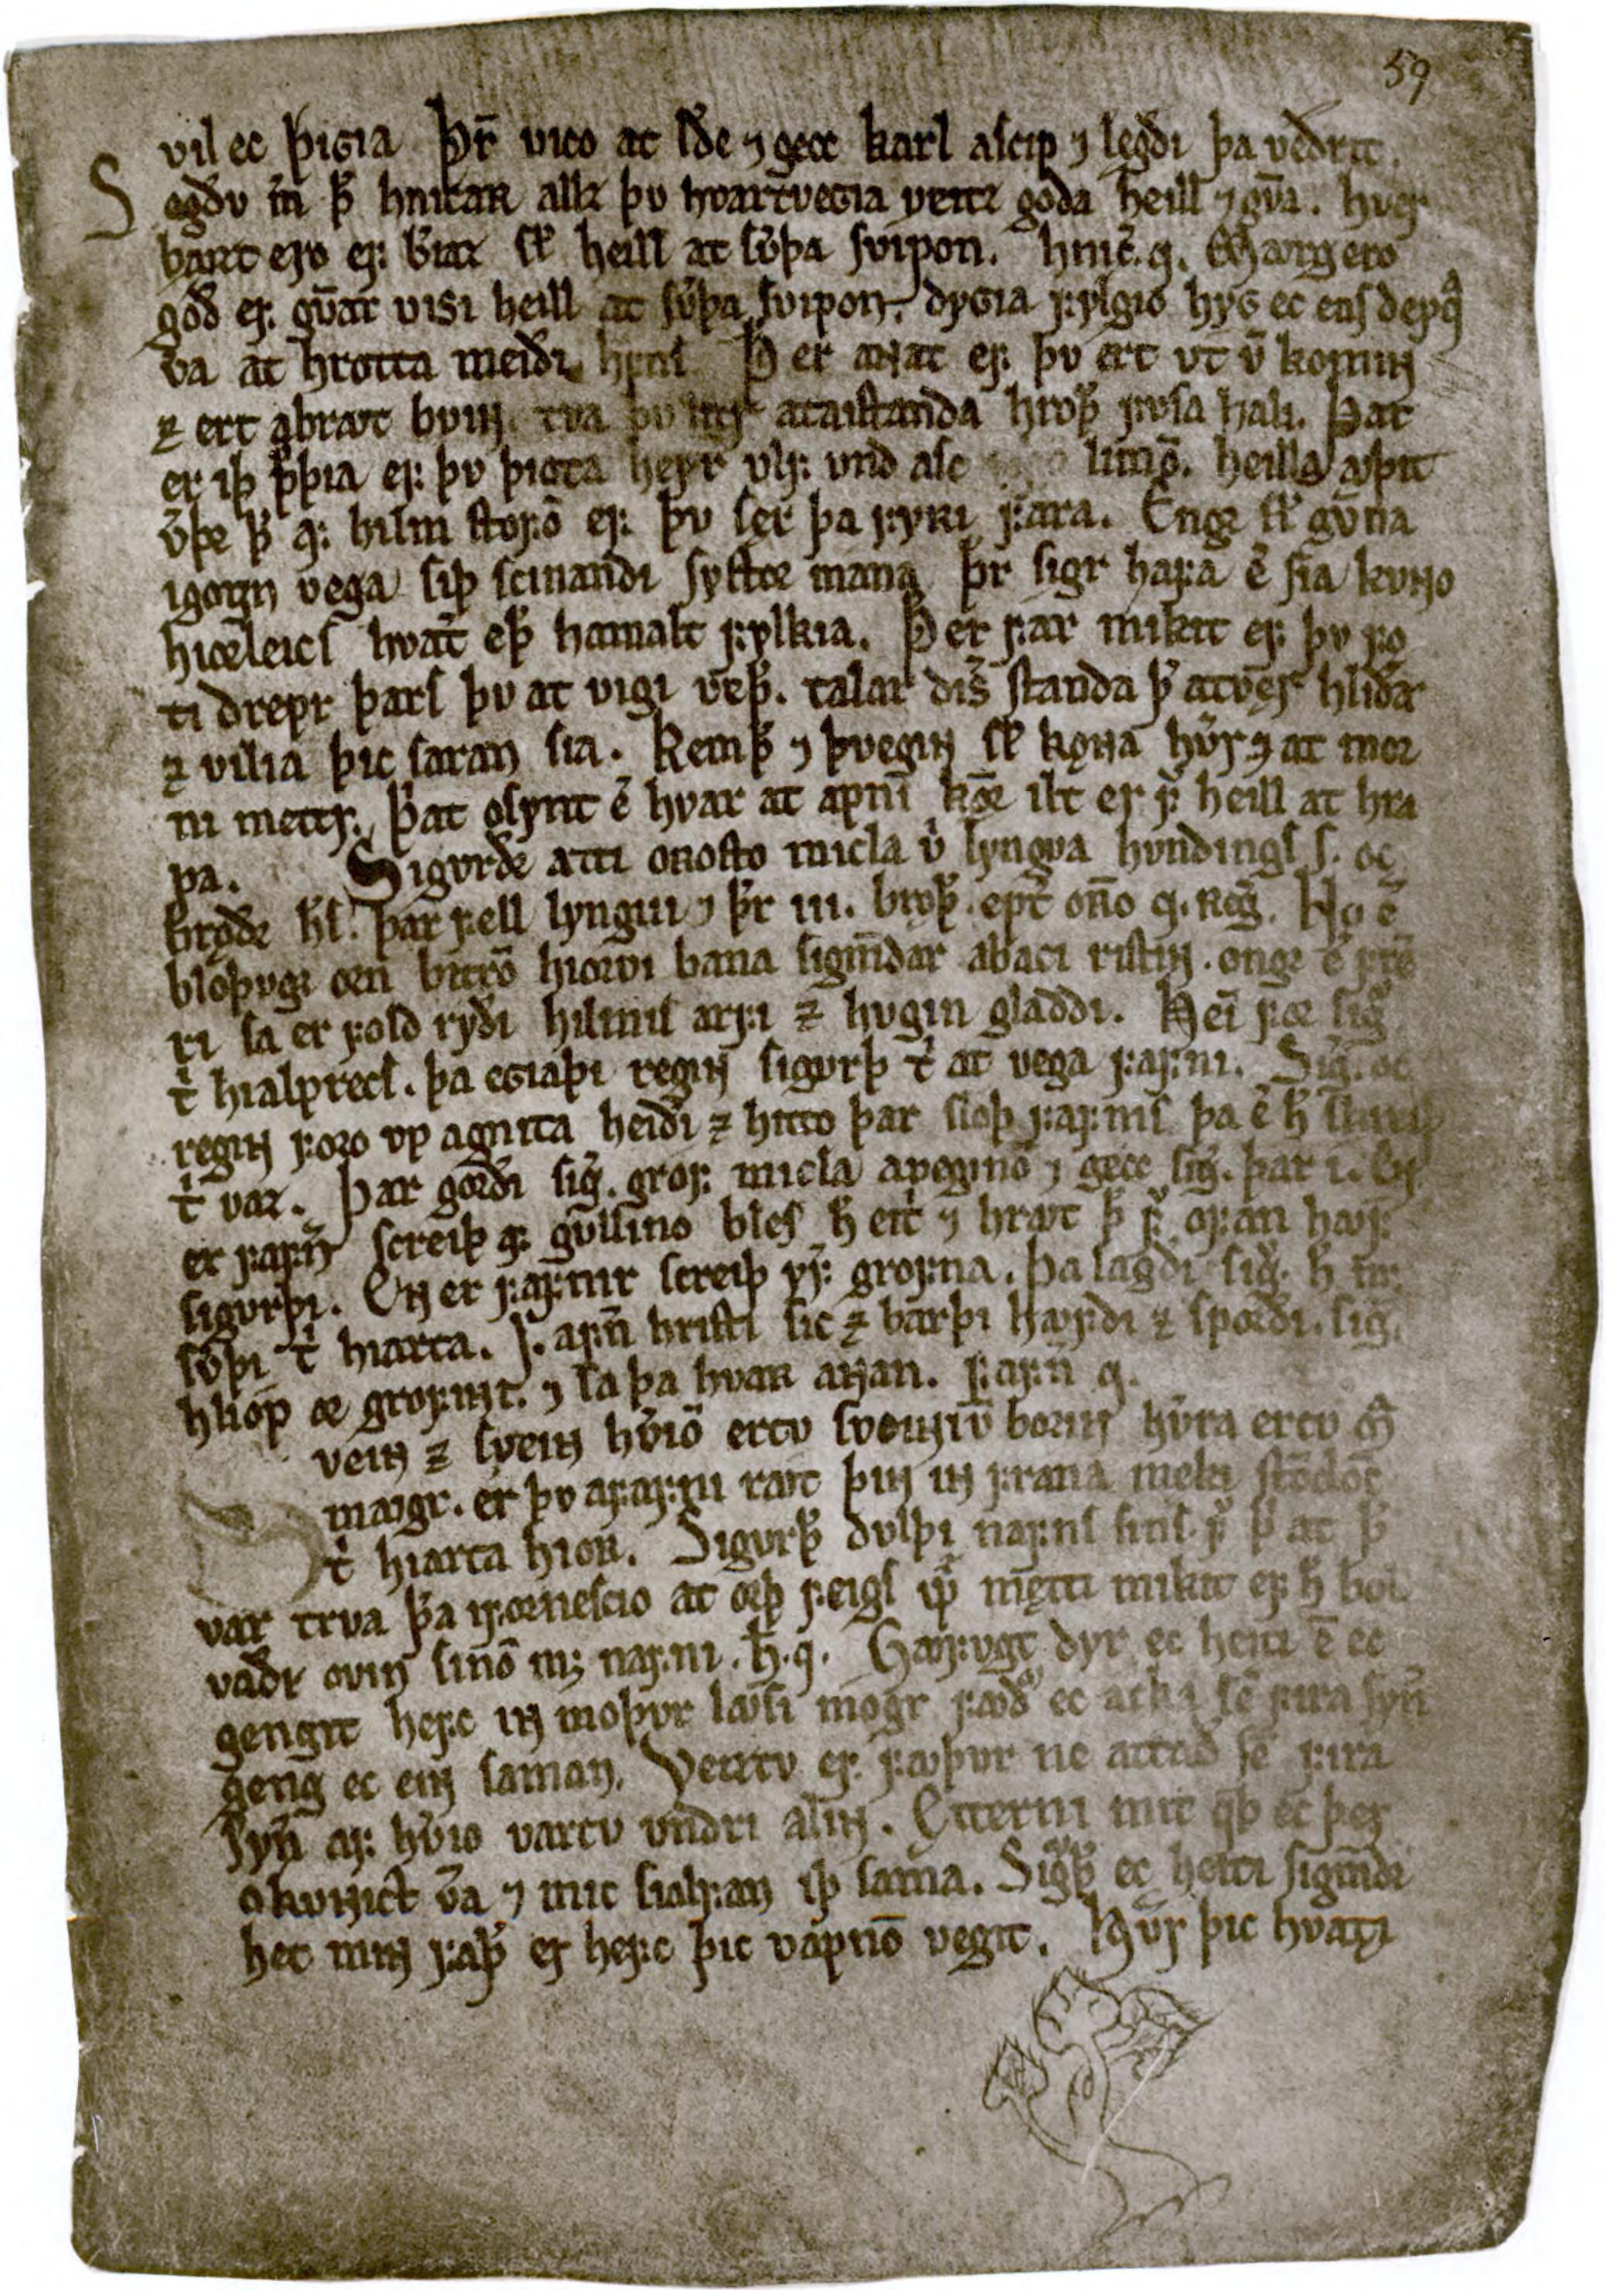 59
vil ec þigia Þr̄ vico at lꝺ̄e ⁊ gecc karl ascip ⁊ lęgði þa veðrit.
Segðv m̄ þ̄ hnicaʀ allz þv hvartvegia veitz goða heill ⁊ gv̄a. hver
bazt ero ef b̄iaz sl̄ heill at sv̄þa svipon. hnic̄. q. Marg ero
goð ef gv̄ar visi heill at sv̄þa svipon. dygia fylgio hyg ec ens deyqᷓ
v̄a at hrotta meiði hfns Þ er aɴat ef þv ert vt v̄ komiɴ
⁊ ert abravt bviɴ. tva þv litr ataistanda hroþ̄ fvsa hali. Þat
er iþ þ̄þia ef þv þiota heyr vlf vnd asc limō. heilla avþit
v̄þꝛ þ̄ af hialm stofō ef þv ser þa fyʀi fara. Engꝛ sl̄ gv̄na
igogn vega siþ scinandi systoꝛ mana þr̄ sigr hafa ē sia kvɴo
hioꝛleics hvat̄ eþ̄ hamalt fylkia. Þer far mikit ef þv fo
ti drepr þars þv at vigi veþ̄. talar dis̄ standa þ̄ atvęr hliðar
⁊ vilia þic saran sia. Kemþ̄ ⁊ þvegiɴ sl̄ kǫɴa hv̄r ⁊ at moꝛ
ni mettr. þ̄at osynt ē hvar at apni kǭꝛ ilt er fᷓ heill at hra
pa. Sigvrðꝛ atti oʀosto micla v̄ lyngva hvndings s. oc
brǫðꝛ h̄s. þar fell lyngui ⁊ þr̄ iii. brǫþ̄. ept̄ oʀo q. reḡ. Nv ē
bloþvgꝛ oꝛn bitrō hioꝛvi bana sigm̄dar abaci ristiɴ. ongꝛ ē frē
ri sa er fold ryði hilmis arfi ⁊ hvgin gladdi. Hei fōꝛ siḡ
t̄ hialprecs. þa egiaþi regiɴ sigvrþ t̄ at vega fafni. Siḡ. oc
regiɴ foꝛo vp agnita heiði ⁊ hitto þar sloþ fafnis þa ē h̄ screiþ
t̄ vaz. Þar gorði siḡ. grof micla aveginō ⁊ gecc siḡ. þar i. En
er fafn̄ screiþ af gvllino bles h̄ eitri ⁊ hravt þ̄ fᷓ ofan hafþ
sigvrþi. Eɴ er fafnir screiþ yf̄ grofna. þa lagði siḡ. h̄ m;
sv̄þi t̄ hiarta. Fafn̄ hristi sic ⁊ barþi hafði ⁊ sporði. siḡ.
hliop oꝛ grofiɴi. ⁊ sa þa hvaʀ aɴan. Fafn̄ q.
Sveiɴ ⁊ sveiɴ hv̄iō ertv sveiɴiv̄ boriɴ hv̄ra ertv m̄
mavgr. er þv afafni ravt þiɴ iɴ frana meki stōdōc
t̄ hiarta hioʀ. Sigvrþ̄ dvlþi nafns sins fᷓ þ̄ at þ̄
var trva þ̄a ifoꝛnescio at oꝛþ feigs m̄ mętti mikit ef h̄ bol
vaði ovin sinō m; nafni. h̄. q. Gavfvgt dyr ec heiti ē ec
gengit hefc iɴ moþvr lavsi mogr favðᷓ ec acka sē fira syn̄
geng ec eiɴ saman. Veiztv ef favþvr ne attað sē fira
syn̄ af hv̄io vartv vndri aliɴ. Ętterni mit qþ ec þer
okvɴict v̄a ⁊ mic sialfan iþ sama. Sigþ̄ ec heiti sigm̄dꝛ
het miɴ faþ̄ er hefc þic vapnō vegit. Hv̄r þic hvatti